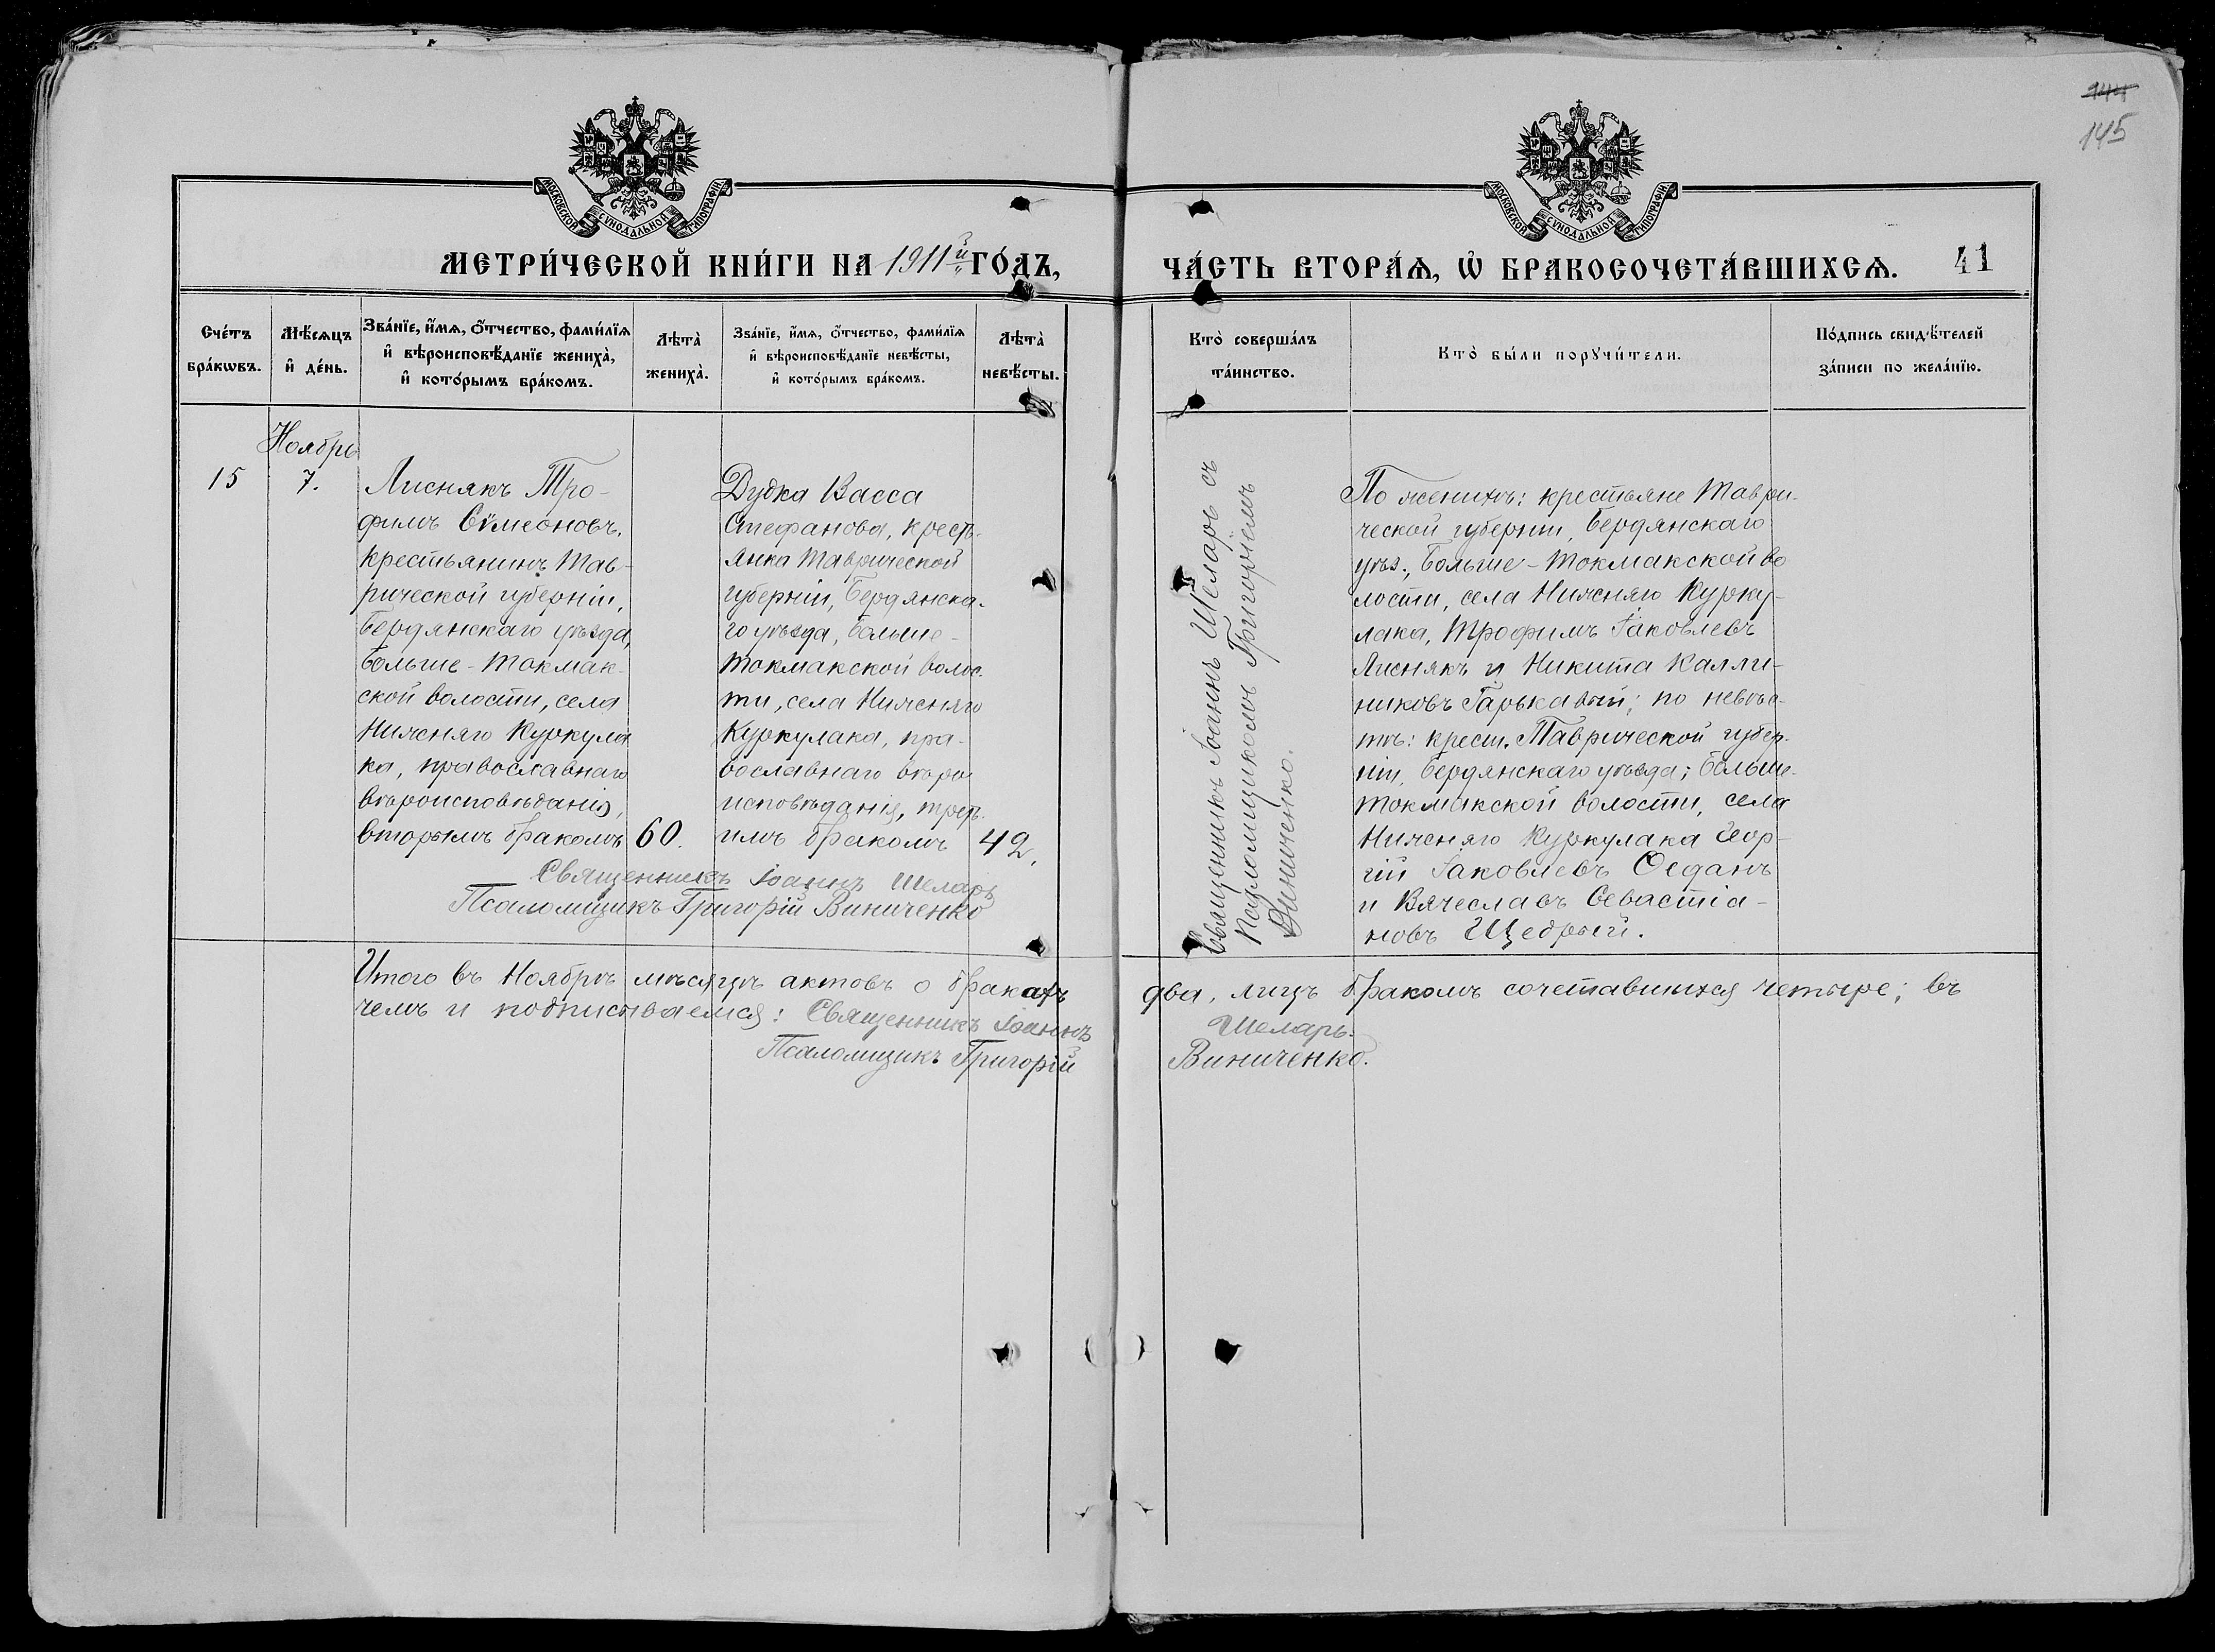 144
145
МОСКОВСКОЙ СУНОДАЛЬНОЙ ТИПОГРАФІИ
МОСКОВСКОЙ СУНОДАЛЬНОЙ ТИПОГРАФІИ
МЕТРИ́ЧЕСКОЙ КНИ́ГИ НА 1911й ГО́ДЪ,
ЧА́СТЬ ВТОРА́Ѧ, Ѡ҆ БРАКОСОЧЕТА́ВШИХСѦ. 41
Сче́тъ бра́кωвъ.
Мѣ́сѧцъ и҆ де́нь.
Зва́нїе, и҆́мѧ, о҆́тчество, фами́лїѧ
и҆ вѣроисповѣ́данїе жениха̀,
и҆ кото́рымъ бра́комъ.
Лѣта̀ жениха̀.
Зва́нїе, и҆́мѧ, о҆́тчество, фами́лїѧ
и҆ вѣроисповѣ́данїе невѣ́сты,
и҆ кото́рымъ бра́комъ.
Лѣта̀ невѣ́сты.
Кто̀ соверша́лъ
та́инство.
Кто̀ бы́ли порꙋчи́тели.
По́дпись свидѣ́телей
за́писи по жела́нїю.
Ноябрь
15
7.
Лиснякъ Тро-
фимъ Сѵмеоновъ,
крестьянинъ Тав-
рической губерніи,
Бердянскаго уѣзда,
Больше-Токмак-
ской волости, села
Нижняго Куркула
ка, православнаго
вѣроисповѣданія,
вторымъ бракомъ
60.
Дудка Васса
Стефанова, кресть-
янка Таврической
губерніи, Бердянска-
го уѣзда, Больше-
Токмакской волос-
ти, села Нижняго
Куркулака, пра-
вославнаго вѣро
исповѣданія, треть-
имъ бракомъ
42.
Священникъ Іоаннъ Шеларь
Псаломщикъ Григорій Виниченко
Священникъ Іоаннъ Шеларь съ
Псаломщикомъ Григоріемъ
Виниченко.
По женихѣ: крестьяне Таври-
ческой губерніи, Бердянскаго
уѣз., Больше-Токмакской во
лости, села Нижняго Курку-
лака, Трофимъ Іаковлевъ
Лиснякъ и Никита Калли-
никовъ Гарькавый; по невѣс-
тѣ: крест. Таврической губер-
ніи, Бердянскаго уѣзда; Больше-
Токмакской волости, села
Нижняго Куркулака Геор-
гій Іаковлевъ Оседанъ
и Вячеславъ Севастіа-
новъ Щедрый.
Итого въ Ноябрѣ мѣсяцѣ актовъ о бракахъ два, лицъ бракомъ сочетавшихся четыре; въ
чемъ и подписываемся: Священникъ Іоаннъ Шеларь.
Псаломщикъ Григорій Виниченко.